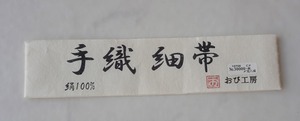 手織細帯
絹100%
おび工房